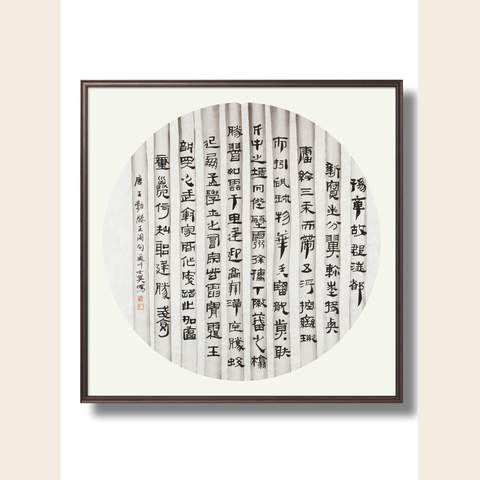 豫章故郡洪都
新府星分翼軫地接衡
廬襟三江而帶五湖控蠻荊
而引甌越物華天寶龍光射
牛斗之墟徐孺下陳蕃之榻
勝友如雲千里逢迎高朋滿座騰蛟
起鳳孟學士之詞宗紫電青霜王
將軍之武庫家君作宰路出名區
童子何知躬逢勝餞
唐王勃滕王閣句